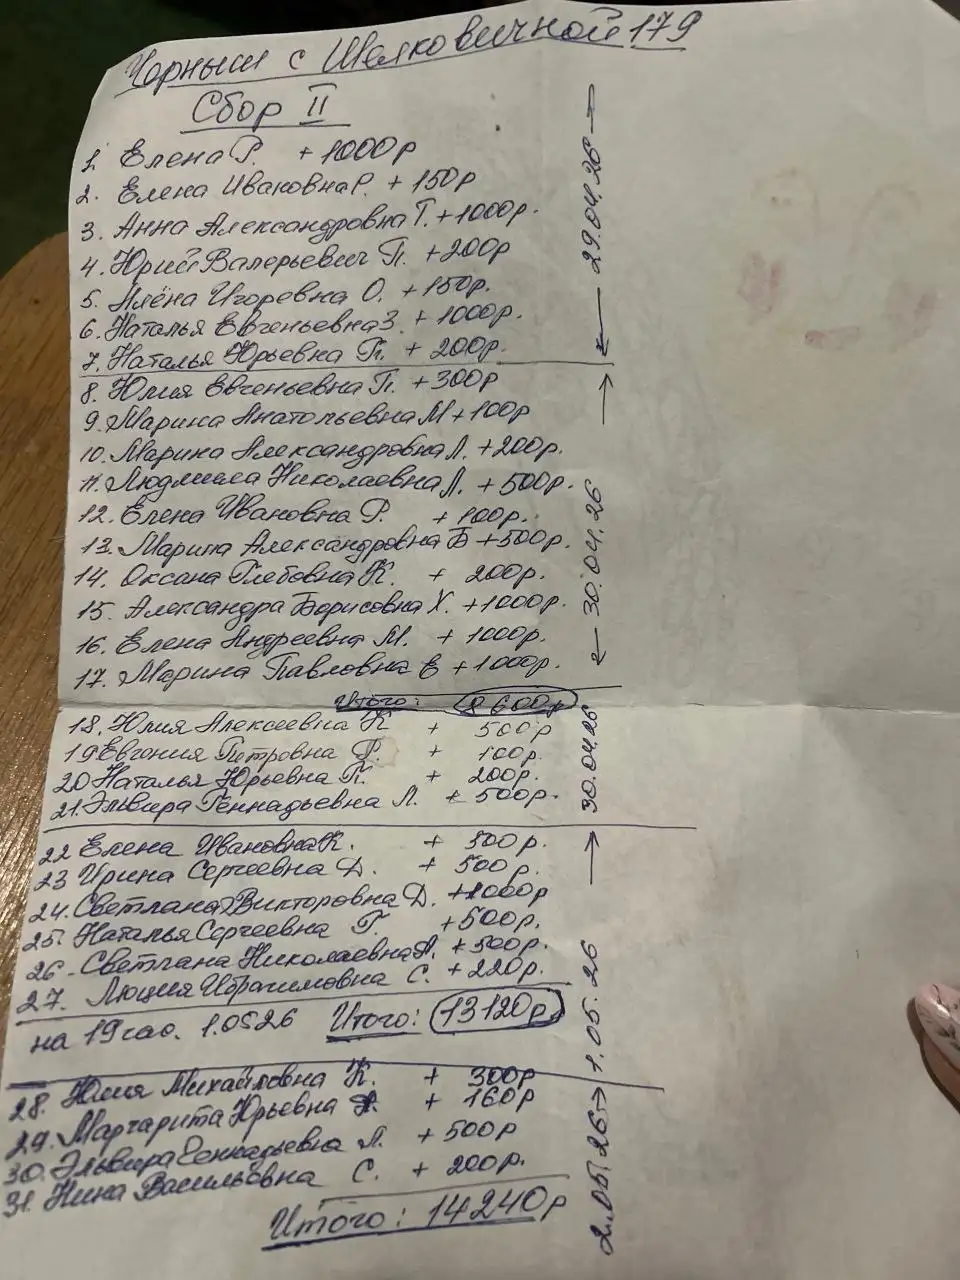 Чорныш с Шелковичной 179
Сбор II
1. Елена Р. + 1000р
2. Елена Ивановна Р. + 150р
3. Анна Александровна Г. + 1000р.
4. Юрий Валерьевич П. + 200р
5. Алёна Игоревна О. + 150р.
6. Наталья Евгеньевна З. + 1000р.
7. Наталья Юрьевна П. + 200р.
← 29.04.26 →
8. Юлия Евгеньевна П. + 300р
9. Марина Анатольевна М + 100р
10. Марина Александровна Л. + 200р.
11. Людмила Николаевна Л. + 500р.
12. Елена Ивановна Р. + 100р.
13. Марина Александровна Б + 500р.
14. Оксана Глебовна К. + 200р.
15. Александра Борисовна Х. + 1000р.
16. Елена Андреевна М. + 1000р.
17. Марина Павловна Е + 1000р.
← 30.04.26 →
Итого: 8600р
18. Юлия Алексеевна К + 500р
19 Евгения Петровна Р. + 100р.
20 Наталья Юрьевна П. + 200р.
21. Эльвира Геннадьевна Л. + 500р.
30.04.26
22 Елена Ивановна К. + 500р.
23 Ирина Сергеевна Д. + 500р.
24. Светлана Викторовна Д. + 1000р
25. Наталья Сергеевна Г. + 500р.
26 Светлана Николаевна А. + 500р.
27. Люция Ибрагимовна С. + 220р.
1.05.26 →
на 19 час. 1.0526 Итого: 13120р
28. Юлия Михайловна К. + 300р
29. Маргарита Юрьевна + 160р
30. Эльвира Геннадьевна Л. + 500р
31. Нина Васильевна С. + 200р.
2.05.26 →
Итого: 14240р